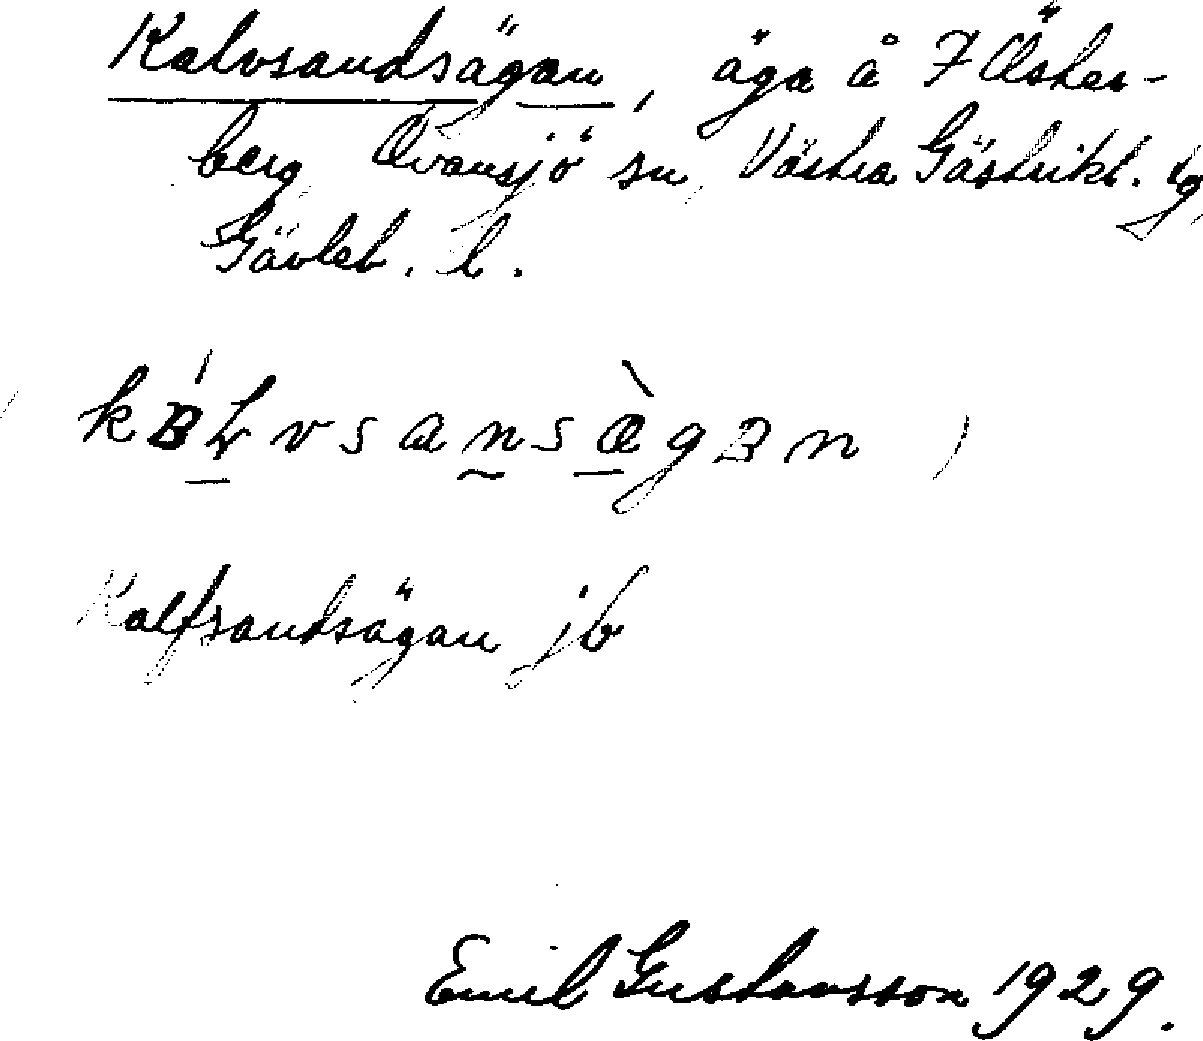 Kalvsandsägan, äga å 7 Öster-
berg Ovansjö sn, Västra Gästrikl. tg,
Gävleb. l.
kɐ́Lvsansæ̀gɐn
Kalfsandsägan jb
Emil Gustavsson 1929.